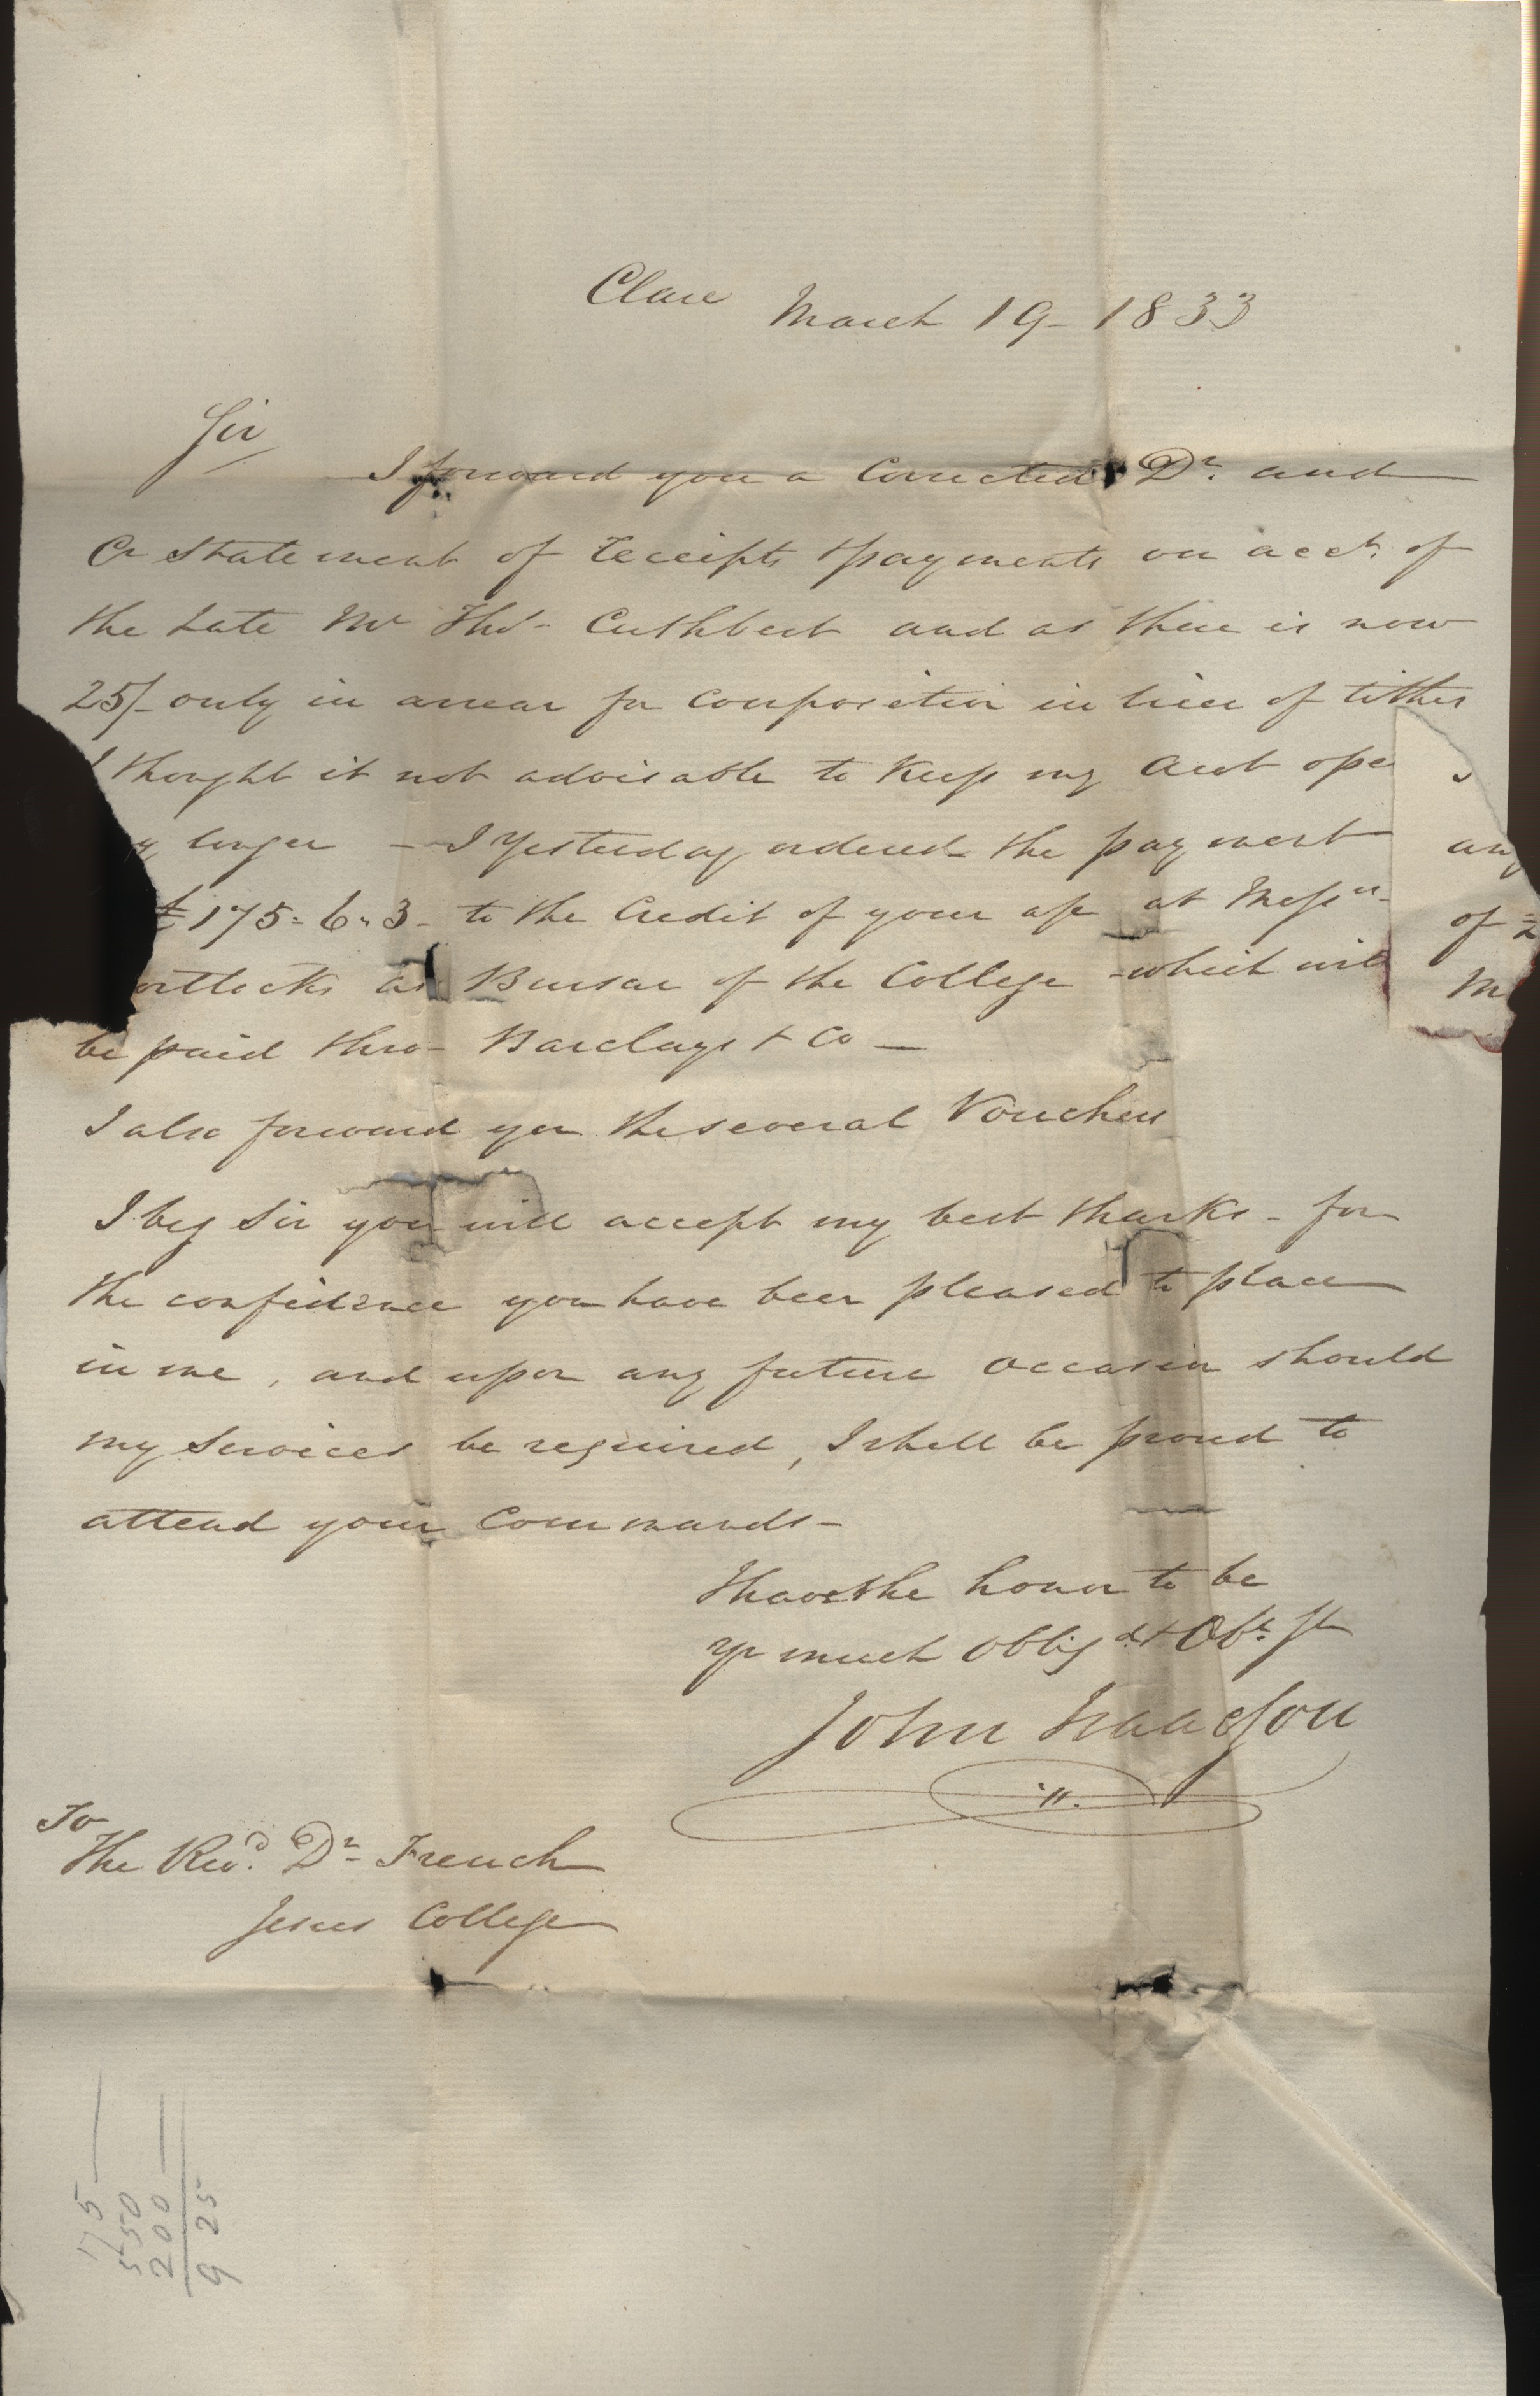 Clare March 19 - 1833
Sir
I forward you a Corrected Dr. and
Cr Statement of receipts & payments on acct. of
the Late Mr Thos- Cuthbert and as there is now
25/- only in arrear for composition in lieu of tithes
I thought it not advisable to Keep my Acct ope
y longer - I Yesterday ordered the payment
£175=6=3- to the Credit of your a/c at Messrs-
ortlocks as Bursar of the College - which will
be paid thro- Barclays & Co -
I also forward you the several Vouchers
I beg Sir you will accept my best thanks - for
the confidence you have been pleased to place
in me, and upon any future Occasion should
my Services be required, I shall be proud to
attend your Commands -
I have the honor to be
yr much Obligd. & Obt. St
John Isaacson
To
The Revd. Dr- French
Jesus College
any
of £
M
175 -
550
200 -
925